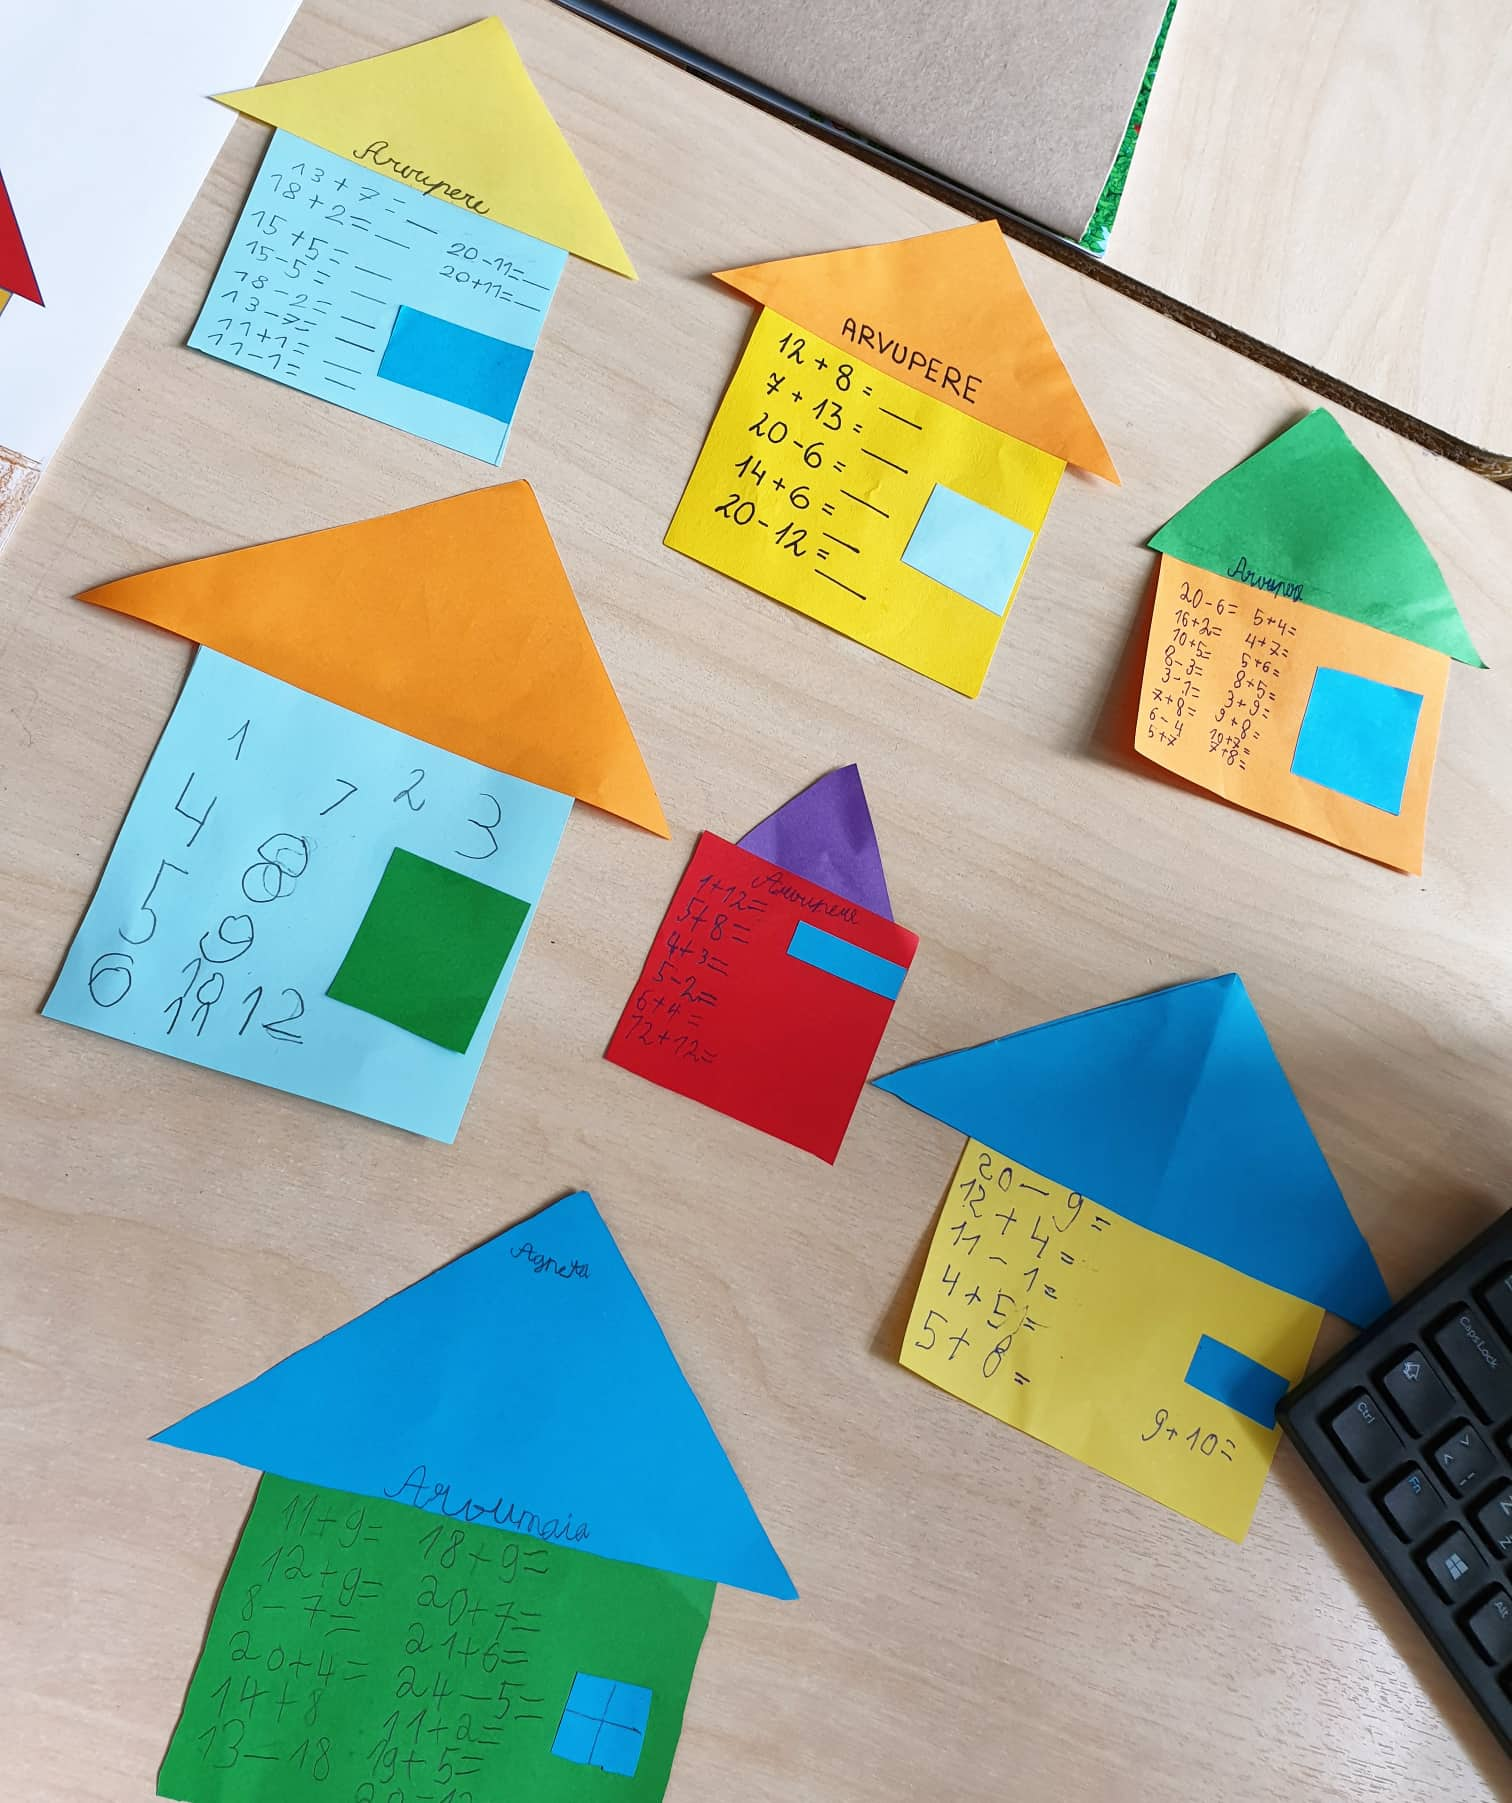 Arvupere
13 + 7 = __
18 + 2 = __
15 + 5 = __
15 - 5 = __
18 - 2 = __
13 - 7 = __
11 + 1 = __
11 - 1 = __
20 - 11 = __
20 + 11 = __
ARVUPERE
12 + 8 = __
7 + 13 = __
20 - 6 = __
14 + 6 = __
20 - 12 = __
20 - 6 =
16 + 2 =
10 + 5 =
8 - 3 =
3 - 1 =
7 + 8 =
6 - 4
5 + 7
5 + 4 =
4 + 7 =
5 + 6 =
8 + 5 =
3 + 9 =
9 + 8 =
10 + 7 =
7 + 8 =
1
4 7 2 3
5
6 11 12
Arvupere
1 + 12 =
5 + 8 =
4 + 3 =
5 - 2 =
6 + 4 =
12 + 12 =
20 - 9 =
12 + 4 =
11 - 1 =
4 + 5 =
5 + 8 =
9 + 10 =
Agneta
Arvumaja
11 + 9 =
12 + 9 =
8 - 7 =
20 + 4 =
14 + 8
13 - 18
18 + 9 =
20 + 7 =
21 + 6 =
24 - 5 =
11 + 2 =
19 + 5 =
Caps Lock
Ctrl
Fn
Alt